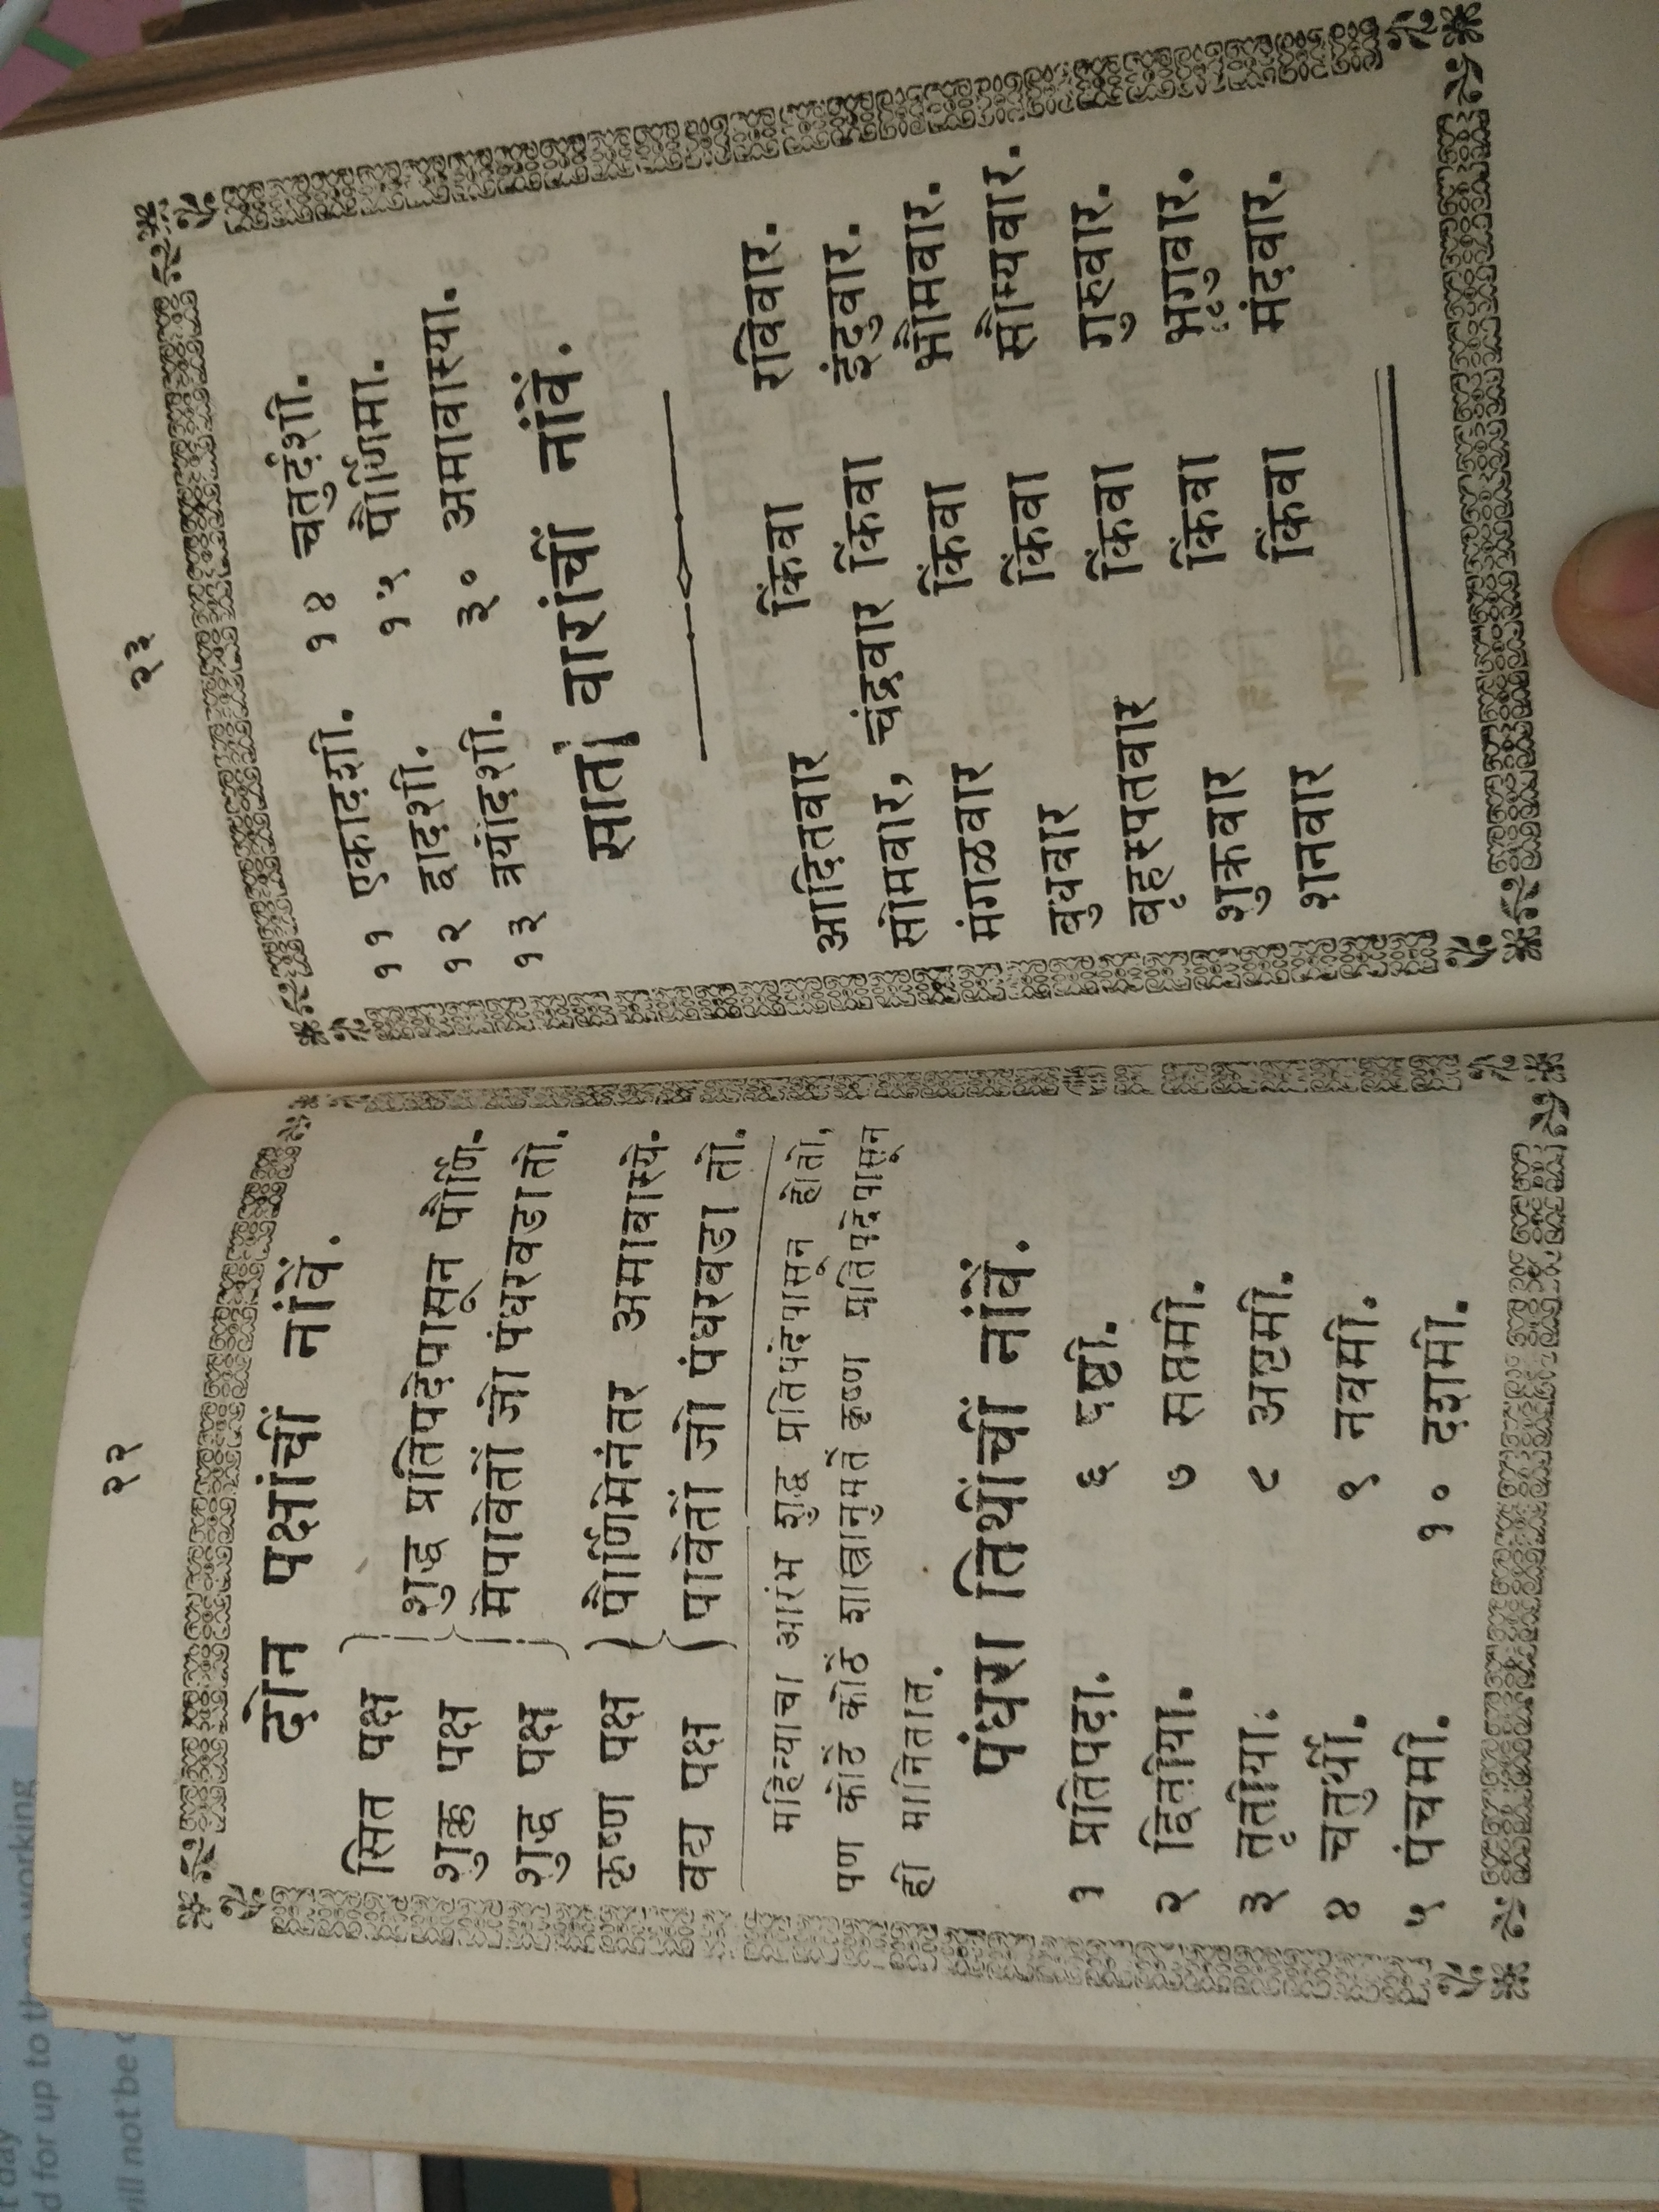 २२
दोन पक्षांचीं नांवें.
सित पक्ष
शुक्ल पक्ष
शुद्ध पक्ष
शुद्ध प्रतिपदेपासून पौर्णि-
मेपावेतों जो पंधरवडा तो.
कृष्ण पक्ष
वद्य पक्ष
पौर्णिमेनंतर अमावास्ये-
पावेतों जो पंधरवडा तो.
महिन्याचा आरंभ शुद्ध प्रतिपदेपासून होतो,
पण कोठें कोठें शास्त्रानुमतें कृष्ण प्रतिपदेपासून
ही मानितात.
पंधरा तिथींचीं नांवें.
१ प्रतिपदा. ६ षष्ठी.
२ द्वितीया. ७ सप्तमी.
३ तृतीया. ८ अष्टमी.
४ चतुर्थी. ९ नवमी.
५ पंचमी. १० दशमी.
२३
११ एकादशी. १४ चतुर्दशी.
१२ द्वादशी. १५ पौर्णिमा.
१३ त्रयोदशी. ३० अमावास्या.
सातां वारांचीं नांवें.
आदितवार किंवा रविवार.
सोमवार, चंद्रवार किंवा इंदुवार.
मंगळवार किंवा भौमवार.
बुधवार किंवा सौम्यवार.
बृहस्पतवार किंवा गुरुवार.
शुक्रवार किंवा भृगुवार.
शनवार किंवा मंदवार.
day
d for up to three working
will not be